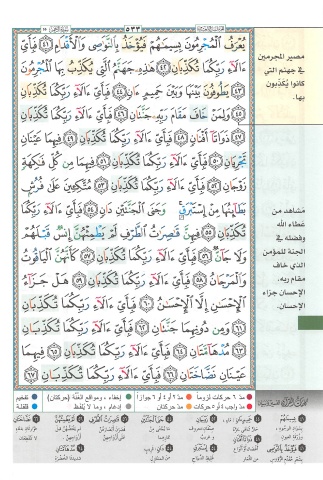 ٥٣٣
يُعْرَفُ الْمُجْرِمُونَ بِسِيمَٰهُمْ فَيُؤْخَذُ بِالنَّوَٰصِى وَالْأَقْدَامِ ٤١ فَبِأَىِّ
ءَالَآءِ رَبِّكُمَا تُكَذِّبَانِ ٤٢ هَٰذِهِۦ جَهَنَّمُ الَّتِى يُكَذِّبُ بِهَا الْمُجْرِمُونَ
٤٣ يَطُوفُونَ بَيْنَهَا وَبَيْنَ حَمِيمٍ ءَانٍ ٤٤ فَبِأَىِّ ءَالَآءِ رَبِّكُمَا تُكَذِّبَانِ
٤٥ وَلِمَنْ خَافَ مَقَامَ رَبِّهِۦ جَنَّتَانِ ٤٦ فَبِأَىِّ ءَالَآءِ رَبِّكُمَا تُكَذِّبَانِ
٤٧ ذَوَاتَآ أَفْنَانٍ ٤٨ فَبِأَىِّ ءَالَآءِ رَبِّكُمَا تُكَذِّبَانِ ٤٩ فِيهِمَا عَيْنَانِ
تَجْرِيَانِ ٥٠ فَبِأَىِّ ءَالَآءِ رَبِّكُمَا تُكَذِّبَانِ ٥١ فِيهِمَا مِن كُلِّ فَٰكِهَةٍ
زَوْجَانِ ٥٢ فَبِأَىِّ ءَالَآءِ رَبِّكُمَا تُكَذِّبَانِ ٥٣ مُتَّكِـِٔينَ عَلَىٰ فُرُشٍۭ
بَطَآئِنُهَا مِنْ إِسْتَبْرَقٍ وَجَنَى الْجَنَّتَيْنِ دَانٍ ٥٤ فَبِأَىِّ ءَالَآءِ رَبِّكُمَا
تُكَذِّبَانِ ٥٥ فِيهِنَّ قَٰصِرَٰتُ الطَّرْفِ لَمْ يَطْمِثْهُنَّ إِنسٌ قَبْلَهُمْ
وَلَا جَآنٌّ ٥٦ فَبِأَىِّ ءَالَآءِ رَبِّكُمَا تُكَذِّبَانِ ٥٧ كَأَنَّهُنَّ الْيَاقُوتُ
وَالْمَرْجَانُ ٥٨ فَبِأَىِّ ءَالَآءِ رَبِّكُمَا تُكَذِّبَانِ ٥٩ هَلْ جَزَآءُ
الْإِحْسَٰنِ إِلَّا الْإِحْسَٰنُ ٦٠ فَبِأَىِّ ءَالَآءِ رَبِّكُمَا تُكَذِّبَانِ
٦١ وَمِن دُونِهِمَا جَنَّتَانِ ٦٢ فَبِأَىِّ ءَالَآءِ رَبِّكُمَا تُكَذِّبَانِ
٦٣ مُدْهَآمَّتَانِ ٦٤ فَبِأَىِّ ءَالَآءِ رَبِّكُمَا تُكَذِّبَانِ ٦٥ فِيهِمَا
عَيْنَانِ نَضَّاخَتَانِ ٦٦ فَبِأَىِّ ءَالَآءِ رَبِّكُمَا تُكَذِّبَانِ ٦٧
مصير المجرمين
في جهنم التي
كانوا يُكَذِّبون
بها.
مَشاهد من
عَطاء الله
وفضله في
الجنة للمؤمن
الذي خاف
مقام ربه.
الإحسان جزاء
الإحسان.
مدّ ٦ حركات لزوماً مدّ ٢ أو ٤ أو ٦ جوازاً إخفاء، ومواقع الغُنَّة (حركتان) تفخيم
مدّ واجب ٤ أو ٥ حركات مدّ حركتان إدغام، وما لا يُلفَظ قلقلة